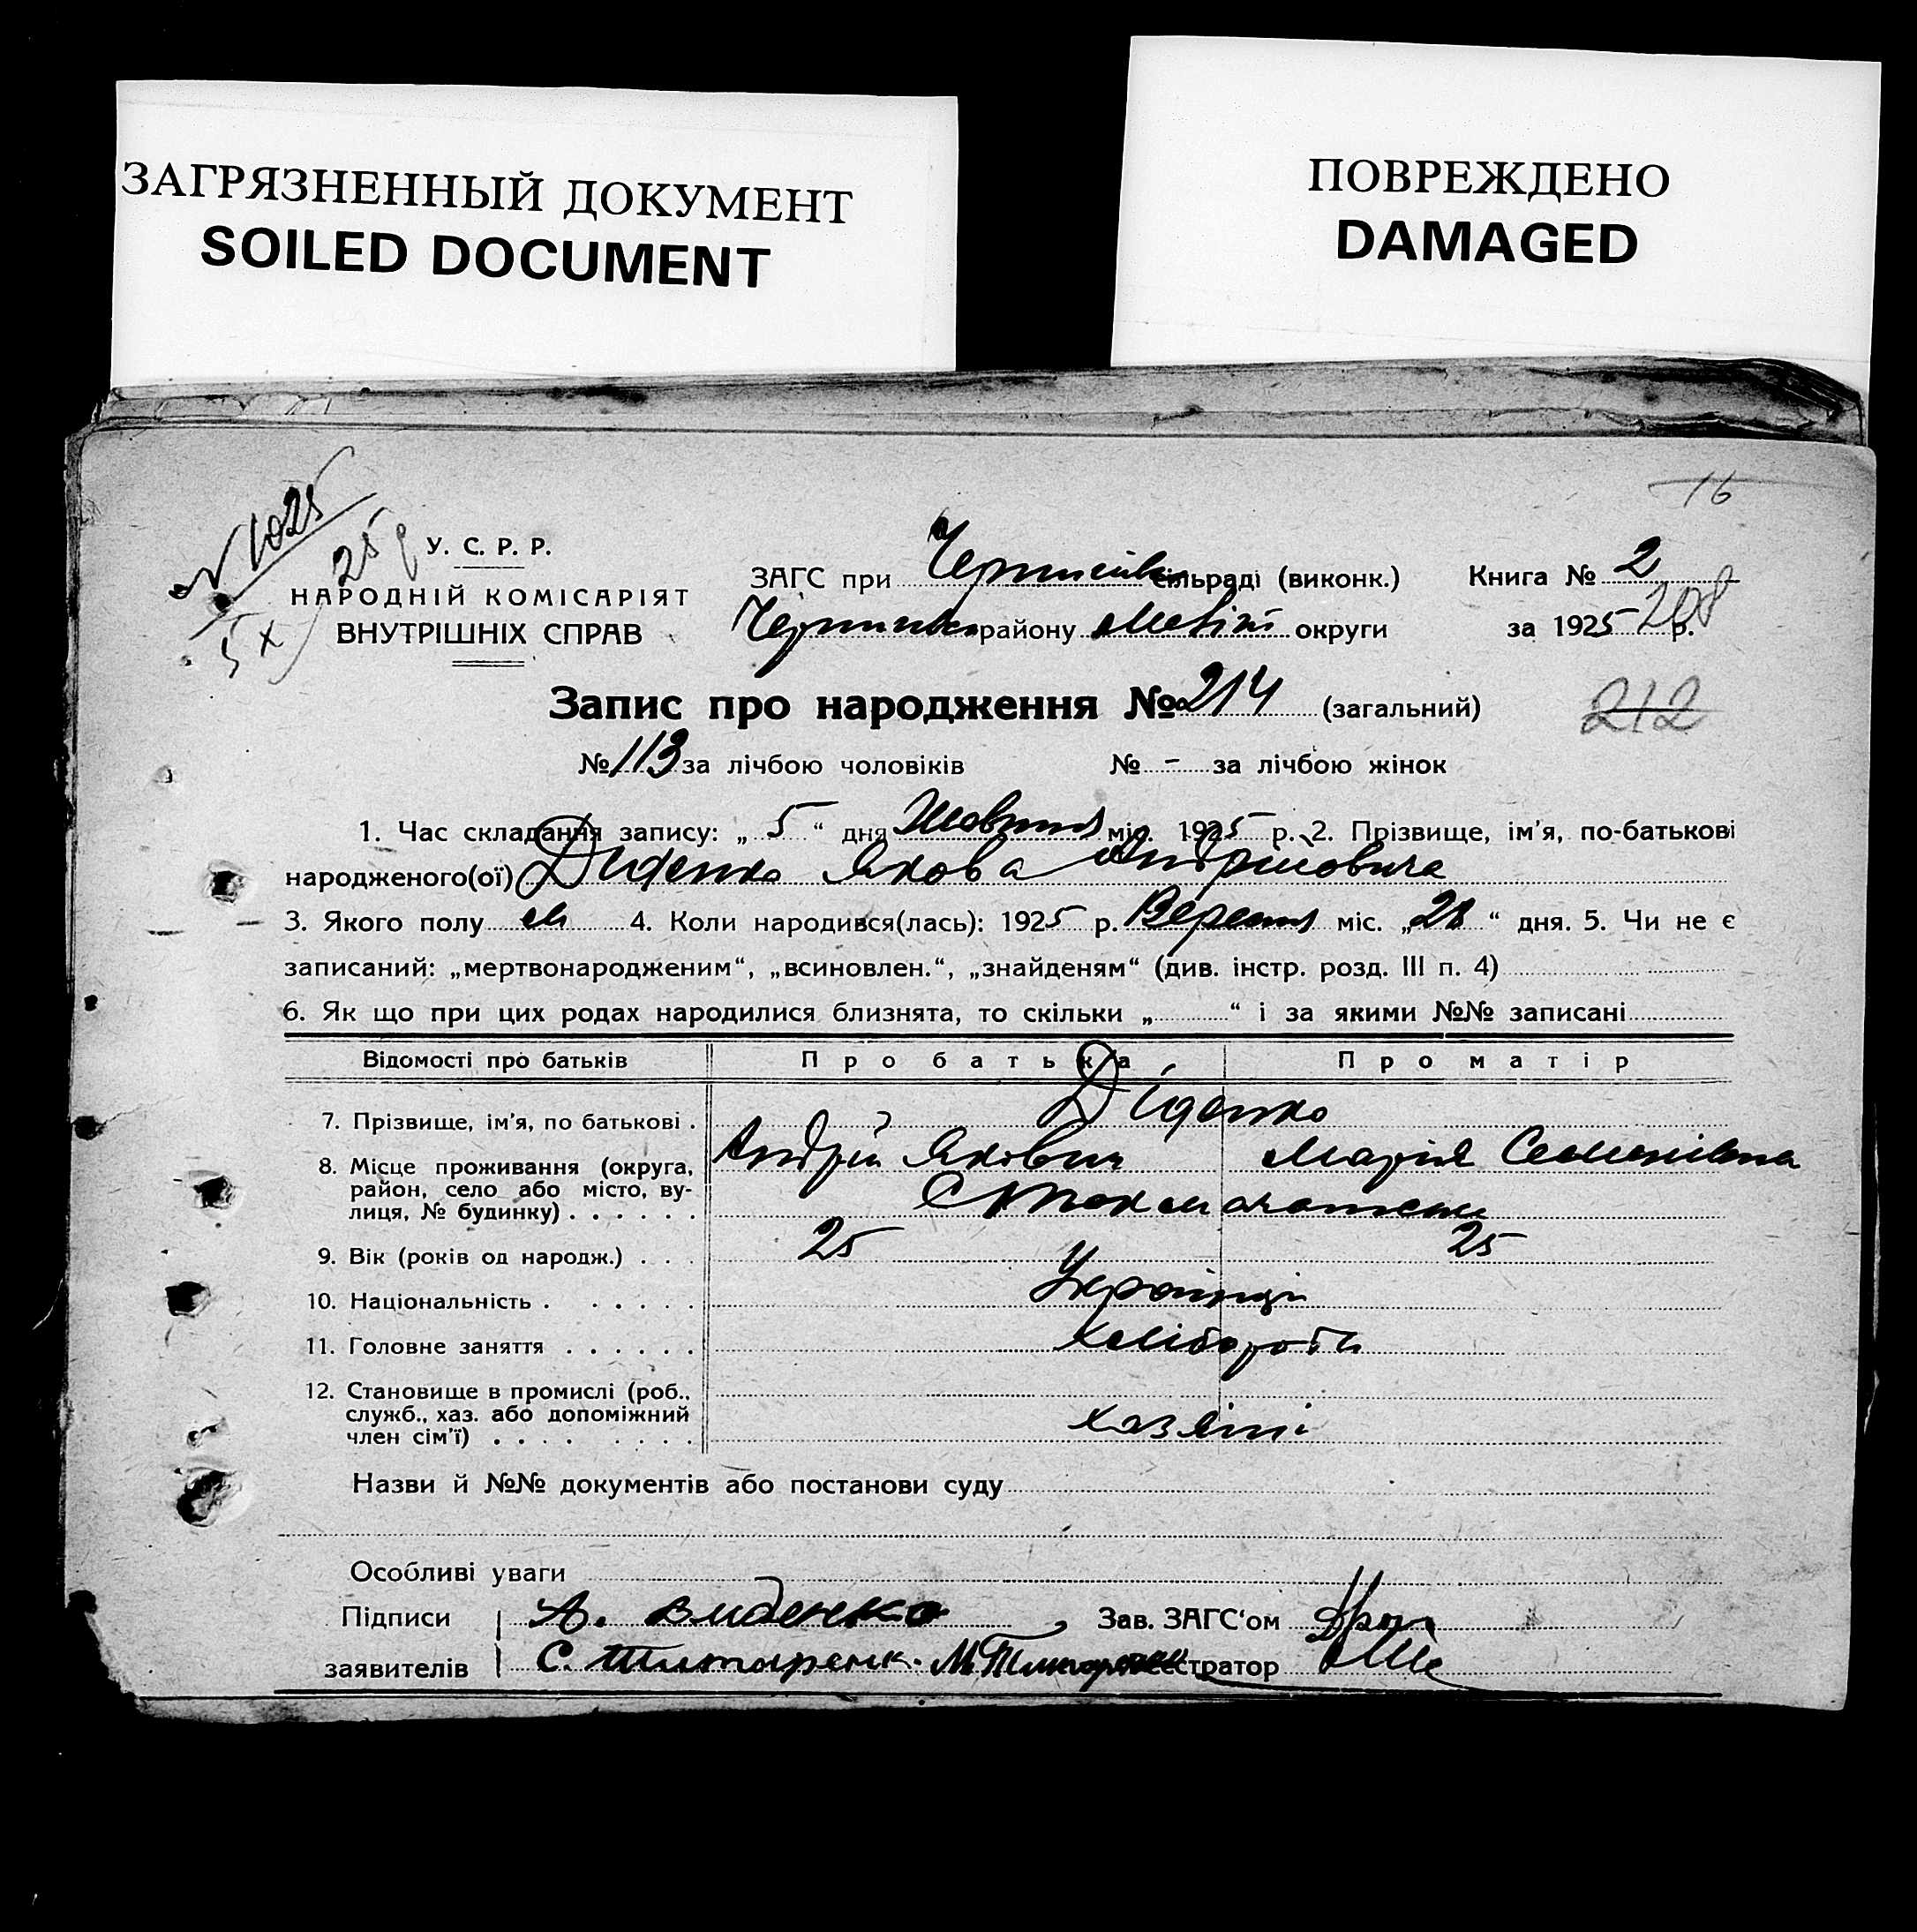 ЗАГРЯЗНЕННЫЙ ДОКУМЕНТ
SOILED DOCUMENT
ПОВРЕЖДЕНО
DAMAGED
16
№ 1025
25
5 X
У. С. Р. Р.
НАРОДНІЙ КОМІСАРІЯТ
ВНУТРІШНІХ СПРАВ
ЗАГС при сільраді (виконк.) Книга № 2
району округи за 1925 р.
208
Запис про народження № 214 (загальний)
212
№ 113 за лічбою чоловіків № - за лічбою жінок
1. Час складання запису: „ 5 “ дня Жовтня міс. 1925 р. 2. Прізвище, ім'я, по-батькові
народженого(ої) Діденко Якова Андрійовича
3. Якого полу м 4. Коли народився(лась): 1925 р. Вересня міс. „28“ дня. 5. Чи не є
записаний: „мертвонародженим“, „всиновлен.“, „знайденям“ (див. інстр. розд. III п. 4)
6. Як що при цих родах народилися близнята, то скільки „ “ і за якими №№ записані
Відомості про батьків Про батька Про матір
7. Прізвище, ім'я, по батькові . Діденко
Андрій Якович Марія Семенівна
8. Місце проживання (округа,
район, село або місто, ву-
лиця, № будинку) . . . . . .
9. Вік (років од народж.) . . . 25 25
10. Національність . . . . . . Українці
11. Головне заняття . . . . . . хлібороби
12. Становище в промислі (роб.,
служб., хаз. або допоміжний
член сім'ї) . . . . . . . . хазяїни
Назви й №№ документів або постанови суду
Особливі уваги
Підписи А. Зав. ЗАГС'ом
заявителів С. М. Реєстратор